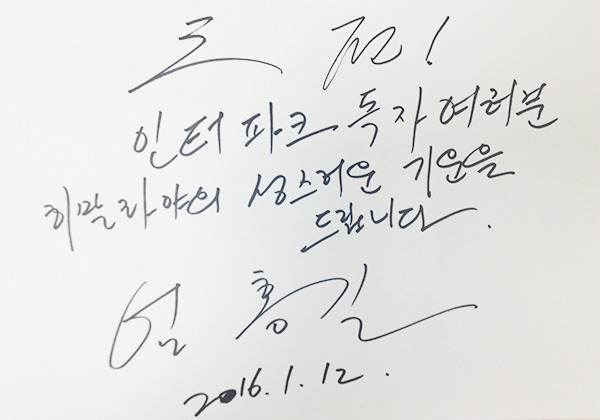 도 전!
인터파크 독자 여러분
히말라야의 성스러운 기운을
드립니다.
엄홍길
2016.1.12.